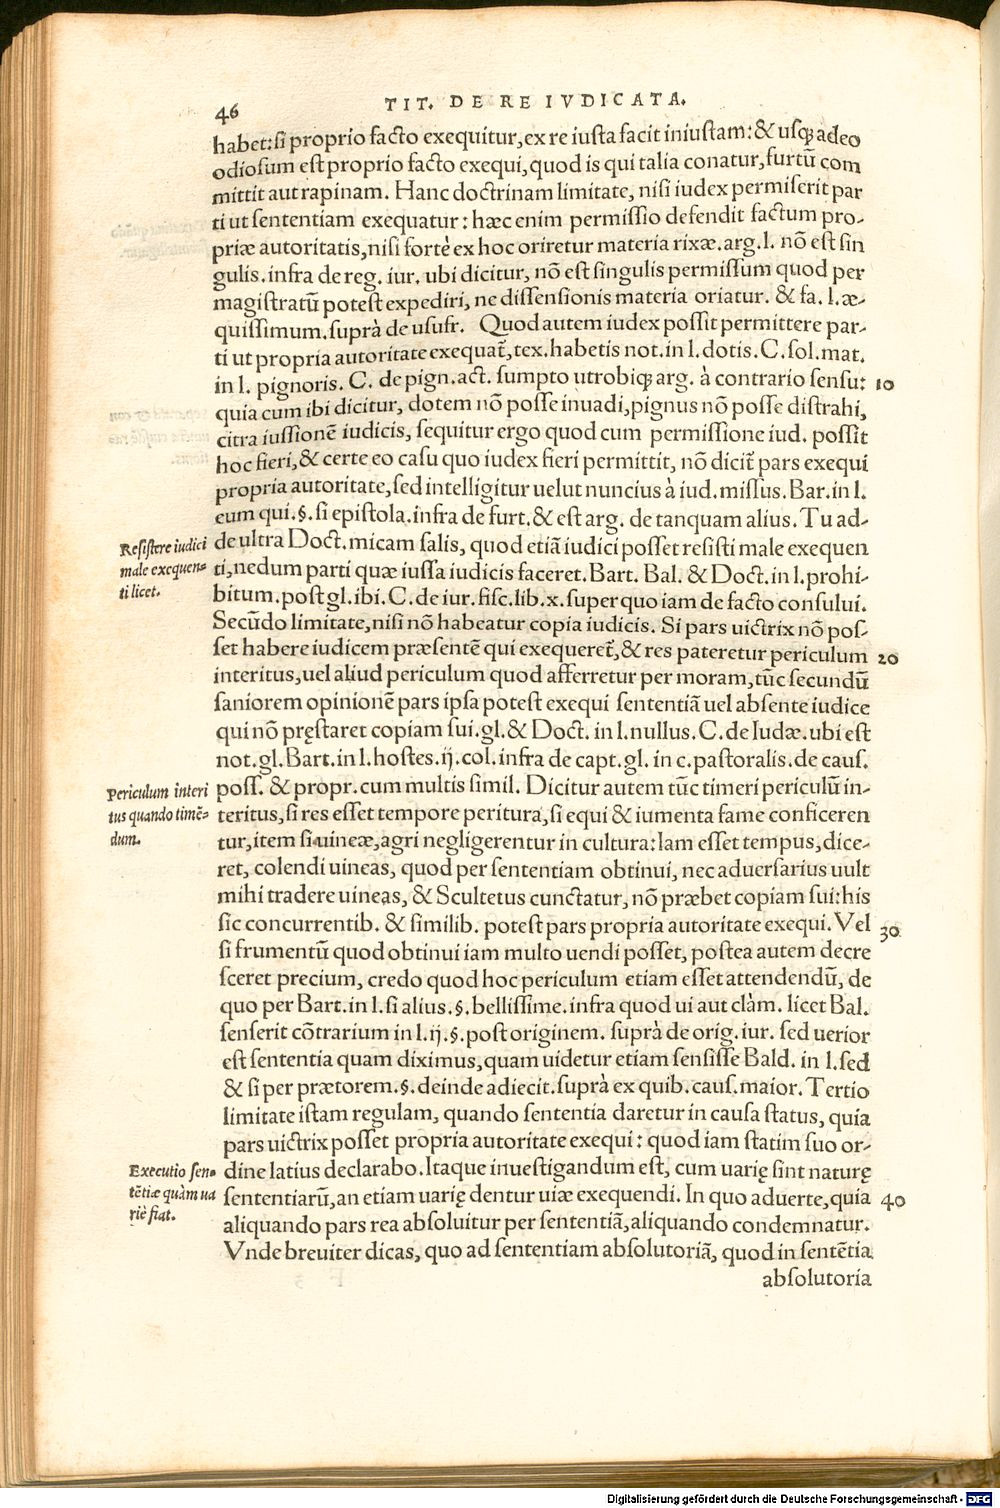 46
TIT. DE RE IVDICATA.
habet: si proprio facto exequitur, ex re iusta facit iniustam: & usq; adeo
odiosum est proprio facto exequi, quod is qui talia conatur, furtũ com
mittit aut rapinam. Hanc doctrinam limitate, nisi iudex permiserit par
ti ut sententiam exequatur: hæc enim permissio defendit factum pro-
priæ autoritatis, nisi fortè ex hoc oriretur materia rixæ. arg. l. nõ est sin
gulis. infra de reg. iur. ubi dicitur, nõ est singulis permissum quod per
magistratũ potest expediri, ne dissensionis materia oriatur. & fa. l. æ-
quissimum. suprà de usufr. Quod autem iudex possit permittere par-
ti ut propria autoritate exequat̃, tex. habetis not. in l. dotis. C. sol. mat.
in l. pignoris. C. de pign. act. sumpto utrobiq; arg. à contrario sensu: 10
quia cum ibi dicitur, dotem nõ posse inuadi, pignus nõ posse distrahi,
citra iussionẽ iudicis, sequitur ergo quod cum permissione iud. possit
hoc fieri, & certe eo casu quo iudex fieri permittit, nõ dicit̃ pars exequi
propria autoritate, sed intelligitur uelut nuncius à iud. missus. Bar. in l.
eum qui. §. si epistola. infra de furt. & est arg. de tanquam alius. Tu ad-
Resistere iudici
male exequen-
ti licet.
de ultra Doct. micam salis, quod etiã iudici posset resisti male exequen
ti, nedum parti quæ iussa iudicis faceret. Bart. Bal. & Doct. in l. prohi-
bitum. post gl. ibi. C. de iur. fisc. lib. x. super quo iam de facto consului.
Secũdo limitate, nisi nõ habeatur copia iudicis. Si pars uictrix nõ pos-
set habere iudicem præsentẽ qui exequeret̃, & res pateretur periculum 20
interitus, uel aliud periculum quod afferretur per moram, tũc secundũ
saniorem opinionẽ pars ipsa potest exequi sententiã uel absente iudice
qui nõ pręstaret copiam sui. gl. & Doct. in l. nullus. C. de Iudæ. ubi est
not. gl. Bart. in l. hostes. ij. col. infra de capt. gl. in c. pastoralis. de caus.
Periculum interi
tus quando timẽ-
dum.
poss. & propr. cum multis simil. Dicitur autem tũc timeri periculũ in-
teritus, si res esset tempore peritura, si equi & iumenta fame conficeren
tur, item si uineæ, agri negligerentur in cultura: Iam esset tempus, dice-
ret, colendi uineas, quod per sententiam obtinui, nec aduersarius uult
mihi tradere uineas, & Scultetus cunctatur, nõ præbet copiam sui: his
sic concurrentib. & similib. potest pars propria autoritate exequi. Vel 30
si frumentũ quod obtinui iam multo uendi posset, postea autem decre
sceret precium, credo quod hoc periculum etiam esset attendendũ, de
quo per Bart. in l. si alius. §. bellissime. infra quod ui aut clàm. licet Bal.
senserit cõtrarium in l. ij. §. post originem. suprà de orig. iur. sed uerior
est sententia quam diximus, quam uidetur etiam sensisse Bald. in l. sed
& si per prætorem. §. deinde adiecit. suprà ex quib. caus. maior. Tertio
limitate istam regulam, quando sententia daretur in causa status, quia
pars uictrix posset propria autoritate exequi: quod iam statim suo or-
Executio sen-
tẽtiæ quàm ua
riè fiat.
dine latius declarabo. Itaque inuestigandum est, cum uarię sint naturę
sententiarũ, an etiam uarię dentur uiæ exequendi. In quo aduerte, quia 40
aliquando pars rea absoluitur per sententiã, aliquando condemnatur.
Vnde breuiter dicas, quo ad sententiam absolutoriã, quod in sentẽtia
absolutoria
Digitalisierung gefördert durch die Deutsche Forschungsgemeinschaft - DFG